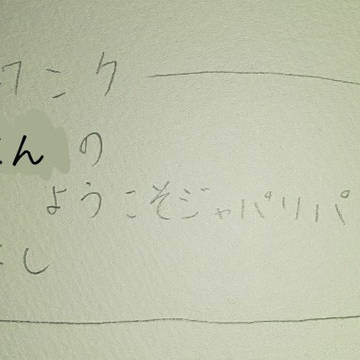 ニク
んの
ようこそジャパリパ
し